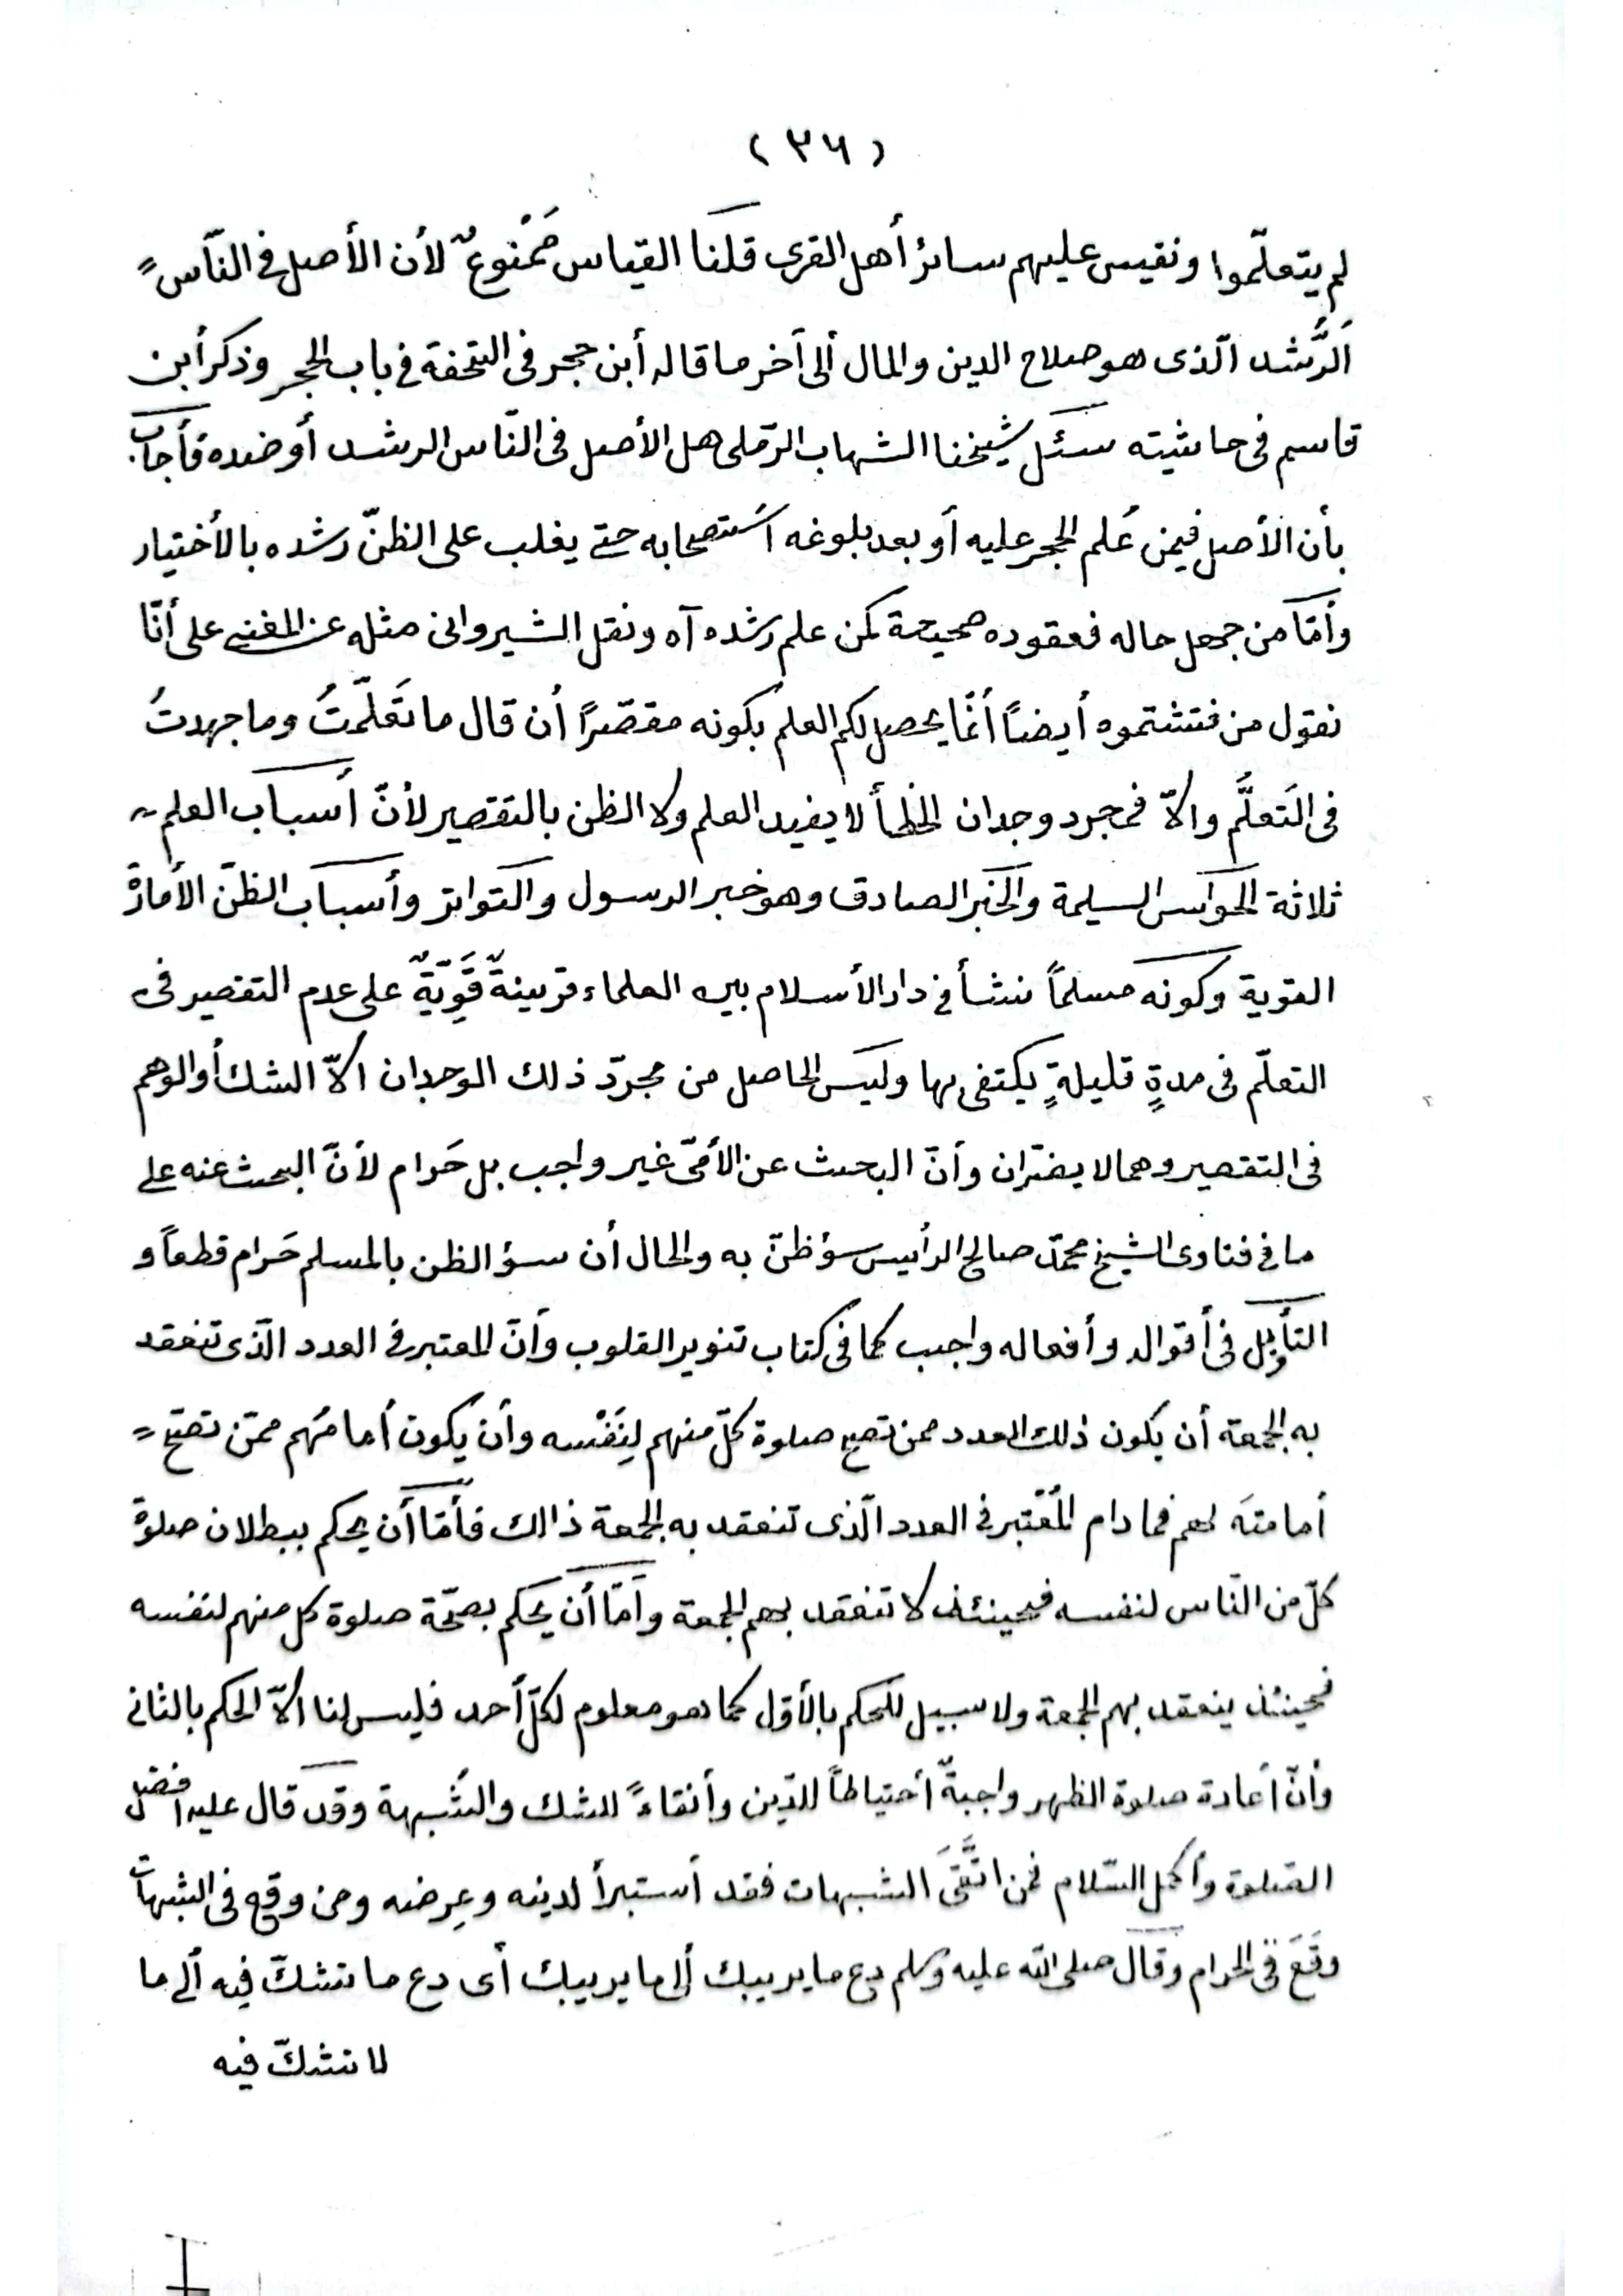 (٣٦)
لم يتعلّموا ونقيس عليهم سائر أهل القرى قلنا القياس مَمْنوعٌ لأن الأصل فى النّاس
اَلرَّشد الّذى هو صلاح الدين والمال ألى آخر ما قاله أبن حجر فى التحفة فى باب الحجر وذكر أبن
قاسم فى حاشيته سئل شيخنا الشهاب الرّملى هل الأصل فى النّاس الرشد أو ضده فأجاب
بأن الأصل فيمن عُلم الحجر عليه أو بعد بلوغه أستصحابه حتى يغلب على الظنّ رشده بالأختيار
وأمّا من جهل حاله فعقوده صحيحة كمن علم رشده آه ونقل الشيروانى مثله عن المغنى على أنّا
نقول من فتشتموه أيضاً أنّما يحصل لكم العلم بكونه مقصّراً أن قال ما تَعَلّمتُ وما جهدتُ
فى التَعلُّم والاّ فمجرد وجدان الخطأ لا يفيد العلم ولا الظن بالتقصير لأنّ أسباب العلم
ثلاثة الحواس السليمة والخبر الصادق وهو خبر الرسول والتواتر وأسباب الظنّ الأمارة
القوية وكونه مسلماً نشأ فى دار الأسلام بين العلماء قرينةٌ قَوِيّةٌ على عدم التقصير فى
التعلّم فى مدةٍ قليلةٍ يكتفى بها وليس الحاصل من مجرّد ذلك الوجدان الاّ الشك أو الوهم
فى التقصير وهما لا يضرّان وأنّ البحث عن الأمّى غير واجب بل حَرام لأنّ البحث عنه على
ما فى فتاوى الشيخ محمّد صالح الرأيس سؤ ظنّ به والحال أن سؤ الظن بالمسلم حَرام قطعاً و
التأويل فى أقواله وأفعاله واجب كما فى كتاب تنوير القلوب وأنّ المعتبر فى العدد الّذى تنعقد
به الجمعة أن يكون ذلك العدد ممن تصح صلوة كلّ منهم لِنَفْسه وأن يكون أمامُهم ممّن تصحّ
أمامتَه لهم فما دام المُعْتبر فى العدد الّذى تنعقد به الجمعة ذالك فأمّا أن يحكم ببطلان صلوة
كلّ من النّاس لنفسه فحينئذ لا تنعقد بهم الجمعة وأمّا أن يحكم بصحّة صلوة كل منهم لنفسه
فحينئذ ينعقد بهم الجمعة ولا سبيل للحكم بالأوّل كما هو معلوم لكلّ أحد فليس لنا الاّ الحكم بالثانى
وأنّ أعادة صلوة الظهر واجبةٌ أحتياطاً للدّين وأتقاءً للشك والشّبهة وقد قال عليه افضل
الصّلوة وأكمل السّلام فمن اتَّقَى الشبهات فقد أستبرأ لدينه وعِرضه ومن وقع فى الشبهات
وقَعَ فى الحرام وقال صلى الله عليه وسلم دع ما يريبك ألى ما يريبك أى دع ما تشكّ فيه ألى ما
لا تشكّ فيه